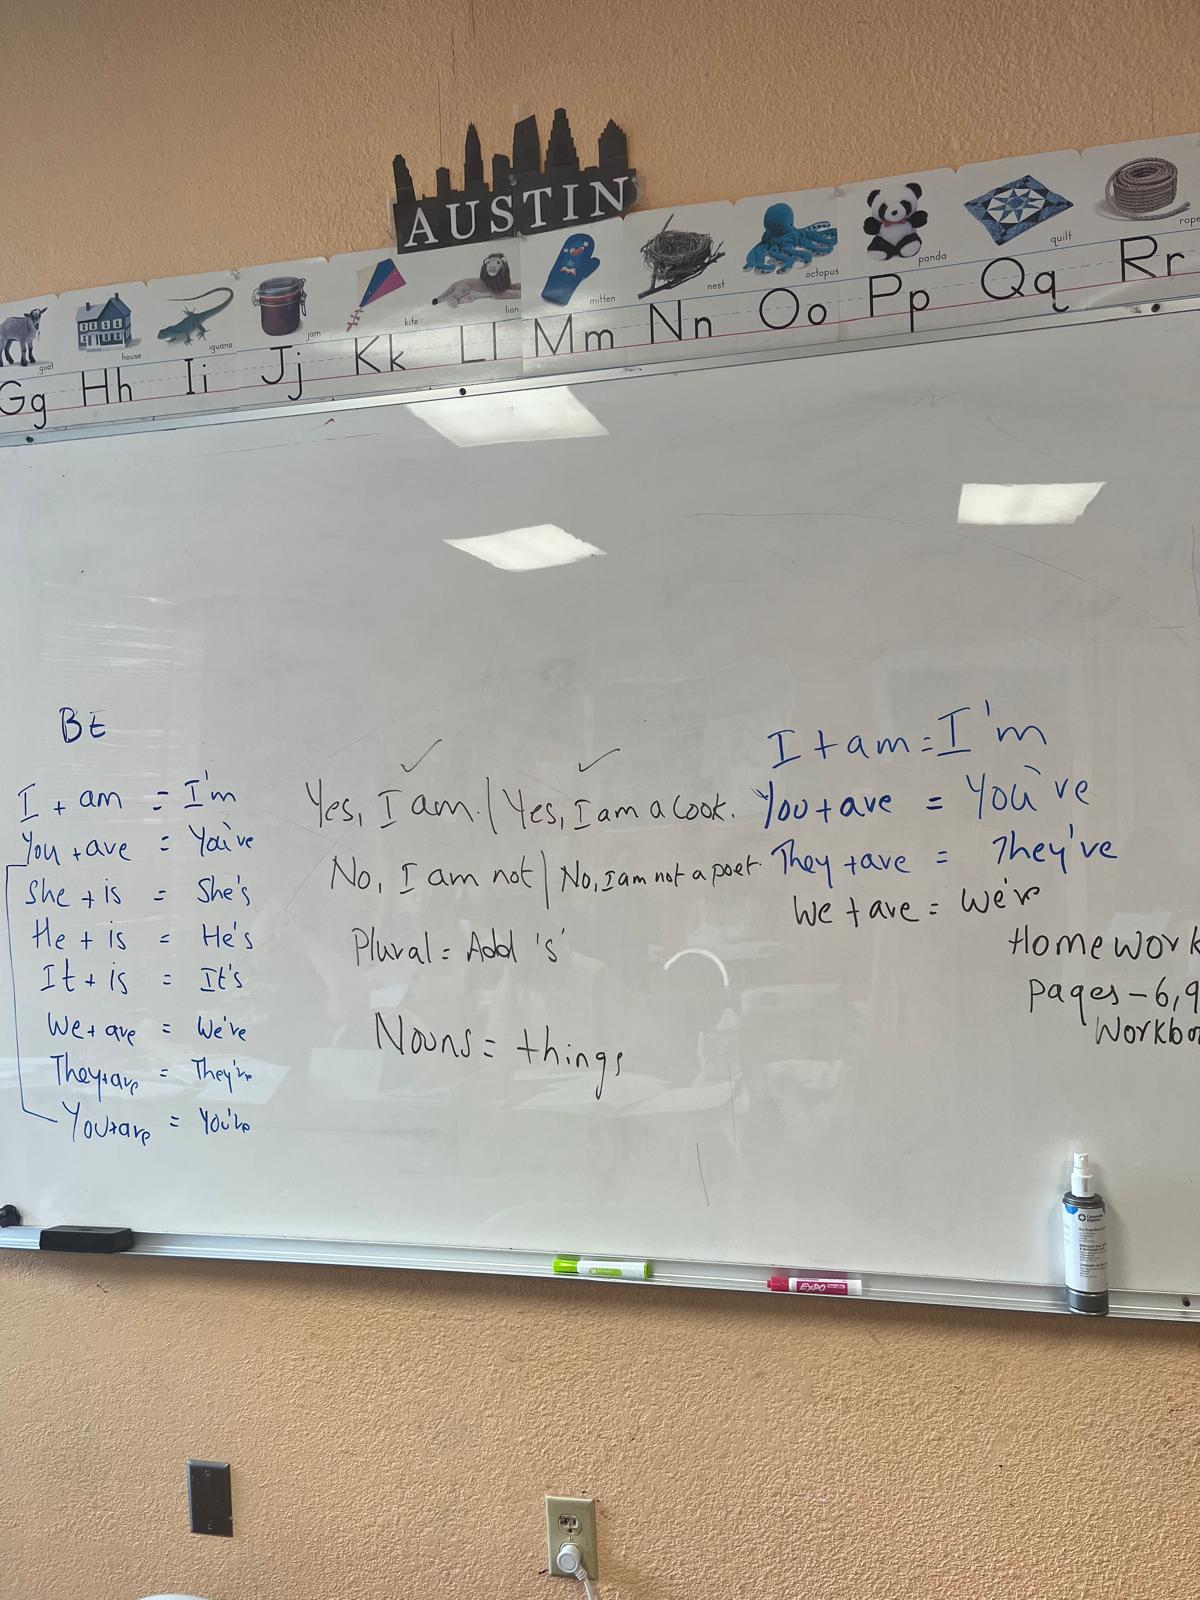 AUSTIN
goat
house
iguana
jam
kite
lion
mitten
nest
octopus
panda
quilt
rope
Gg Hh Ii Jj Kk Ll Mm Nn Oo Pp Qq Rr
BE
I + am = I'm
You + are = You're
She + is = She's
He + is = He's
It + is = It's
We + are = We're
They + are = They're
You + are = You're
Yes, I am. / Yes, I am a cook.
No, I am not / No, I am not a poet.
Plural = Add 's'
Nouns = things
I + am = I'm
You + are = You're
They + are = They're
We + are = We're
Homework
pages - 6, 9
Workboo
EXPO